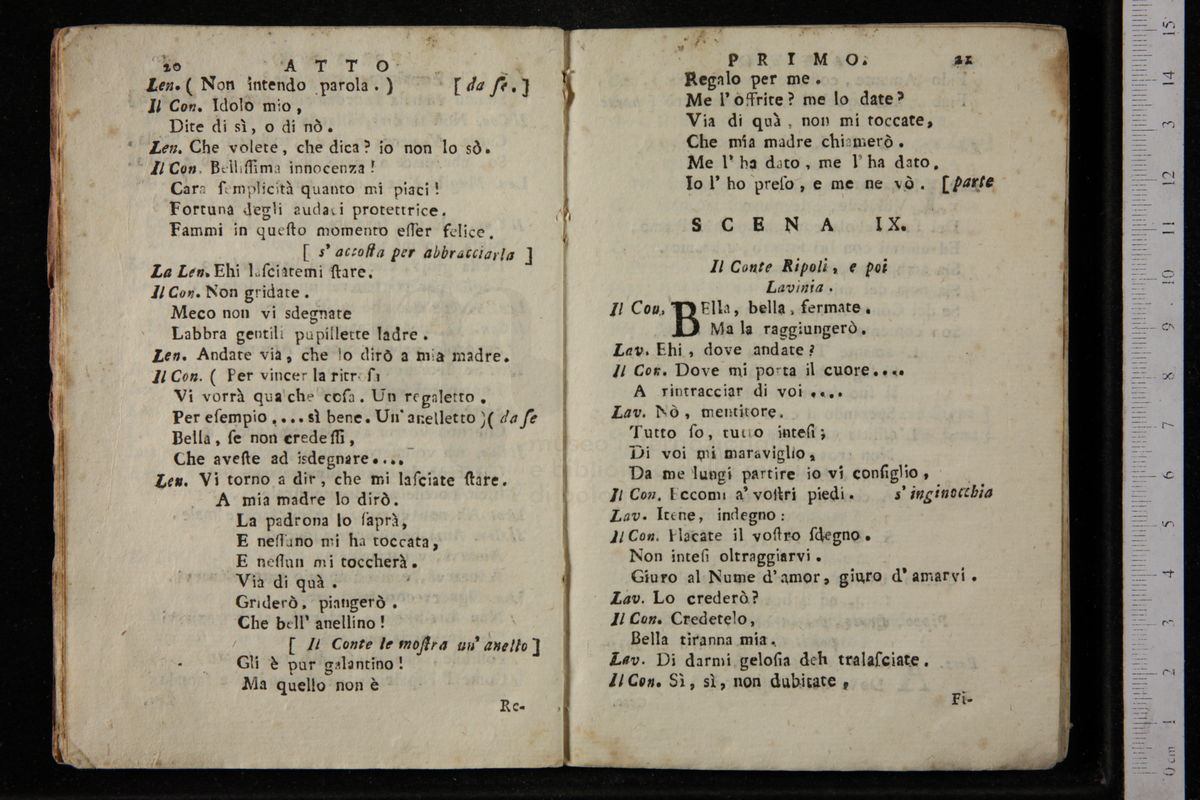 20 ATTO
Len. ( Non intendo parola. ) [ da ſe. ]
Il Con. Idolo mio,
Dite di sì, o di nò.
Len. Che volete, che dica? io non lo sò.
Il Con. Belliſſima innocenza!
Cara ſemplicità quanto mi piaci!
Fortuna degli audaci protettrice.
Fammi in queſto momento eſſer felice.
[ s' accoſta per abbracciarla ]
La Len. Ehi laſciatemi ſtare.
Il Con. Non gridate.
Meco non vi sdegnate
Labbra gentili pupillette ladre.
Len. Andate via, che lo dirò a mia madre.
Il Con. ( Per vincer la ritroſa
Vi vorrà qualche coſa. Un regaletto.
Per eſempio .... sì bene. Un' anelletto )( da ſe
Bella, ſe non credeſſi,
Che aveſte ad isdegnare....
Len. Vi torno a dir, che mi laſciate ſtare.
A mia madre lo dirò.
La padrona lo ſaprà,
E neſſuno mi ha toccata,
E neſſun mi toccherà.
Via di quà.
Griderò, piangerò.
Che bell' anellino!
[ Il Conte le moſtra un' anello ]
Gli è pur galantino!
Ma quello non è
Re-
PRIMO. 21
Regalo per me.
Me l' offrite? me lo date?
Via di quà, non mi toccate,
Che mia madre chiamerò.
Me l' ha dato, me l' ha dato,
Io l' ho preſo, e me ne vò. [ parte
SCENA IX.
Il Conte Ripoli, e poi
Lavinia.
Il Con. BElla, bella, fermate.
Ma la raggiungerò.
Lav. Ehi, dove andate?
Il Con. Dove mi porta il cuore....
A rintracciar di voi ....
Lav. Nò, mentitore.
Tutto ſo, tutto inteſi;
Di voi mi maraviglio,
Da me lungi partire io vi conſiglio,
Il Con. Eccomi a' voſtri piedi. s' inginocchia
Lav. Itene, indegno:
Il Con. Placate il voſtro ſdegno.
Non inteſi oltraggiarvi.
Giuro al Nume d' amor, giuro d' amarvi.
Lav. Lo crederò?
Il Con. Credetelo,
Bella tiranna mia.
Lav. Di darmi geloſia deh tralaſciate.
Il Con. Sì, sì, non dubitate,
Fi-